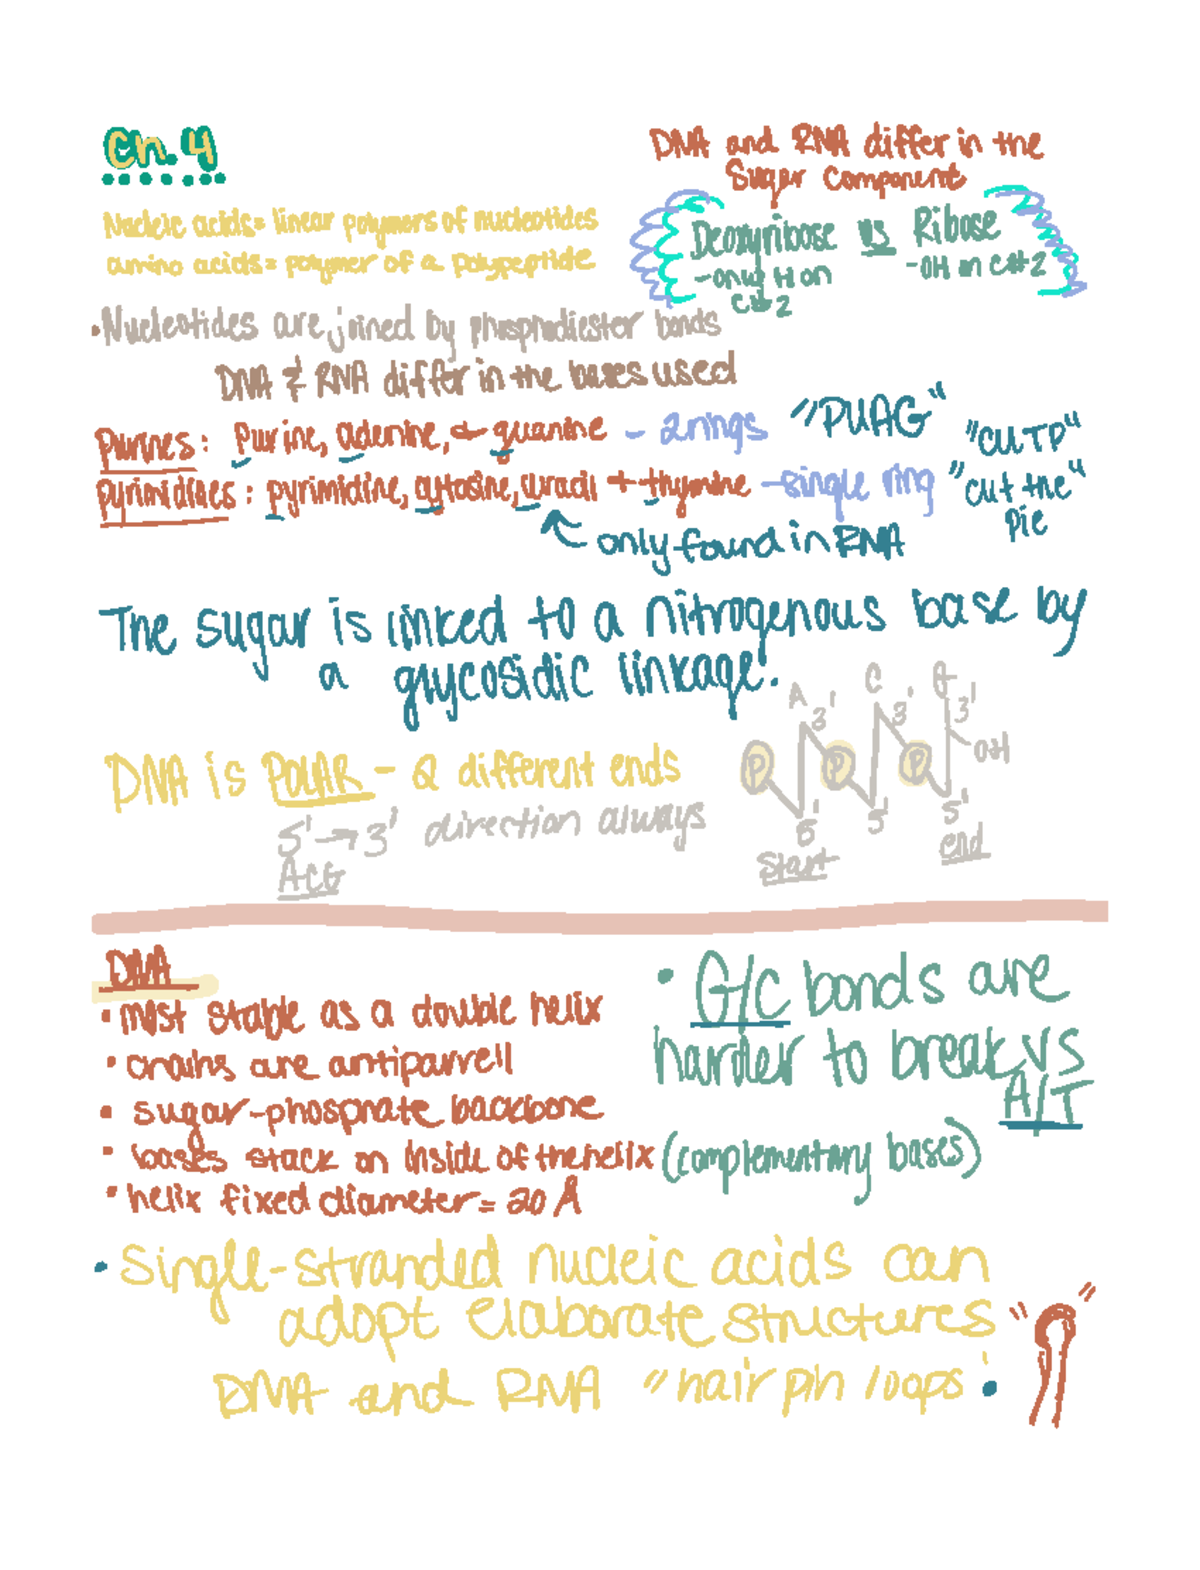 Ch. 4
Nucleic acids = linear polymers of nucleotides
amino acids = polymer of a polypeptide
DNA and RNA differ in the
Sugar Component
Deoxyribose vs Ribose
-only H on
C#2
-OH on C#2
•Nucleotides are joined by phosphodiester bonds
DNA & RNA differ in the bases used
purines: purine, adenine, + guanine - 2 rings "PUAG"
pyrimidines: pyrimidine, cytosine, uracil + thymine - single ring
"CUTP"
"cut the"
pie
only found in RNA
The sugar is linked to a nitrogenous base by
a glycosidic linkage.
DNA is POLAR - 2 different ends
5' → 3' direction always
ACG
A C G
3' 3' 3'
P P P OH
5' 5' 5'
start end
DNA
• most stable as a double helix
• chains are antiparrell
• sugar-phosphate backbone
• bases stack on inside of the helix
• helix fixed diameter = 20 Å
• G/C bonds are
harder to break vs
A/T
(complementary bases)
• Single-stranded nucleic acids can
adopt elaborate structures
DNA and RNA "hair pin loops"